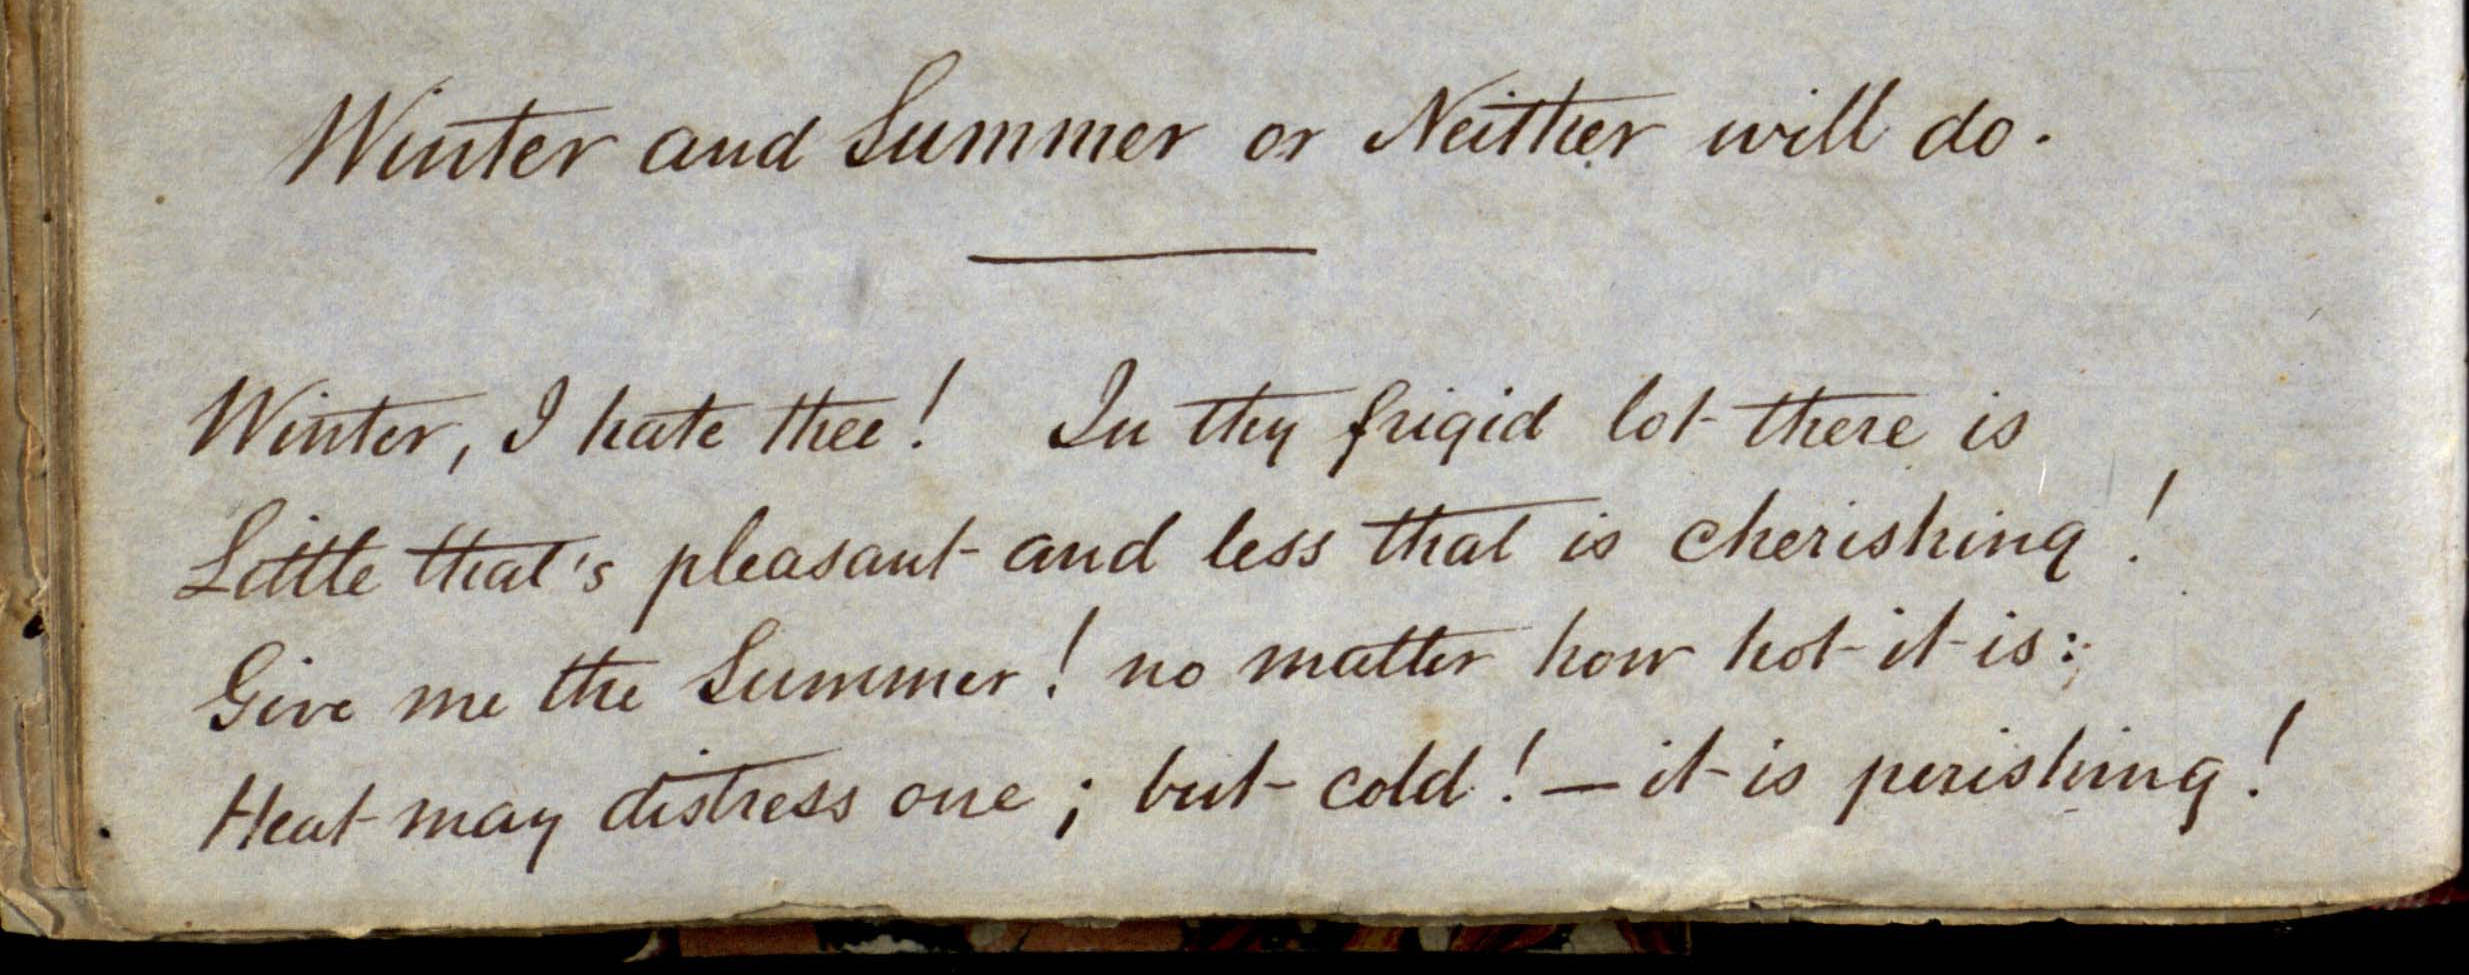 Winter and Summer or Neither will do.
Winter, I hate thee! In thy frigid lot there is
Little that's pleasant and less that is cherishing!
Give me the Summer! no matter how hot it is:
Heat may distress one; but cold! — it is perishing!